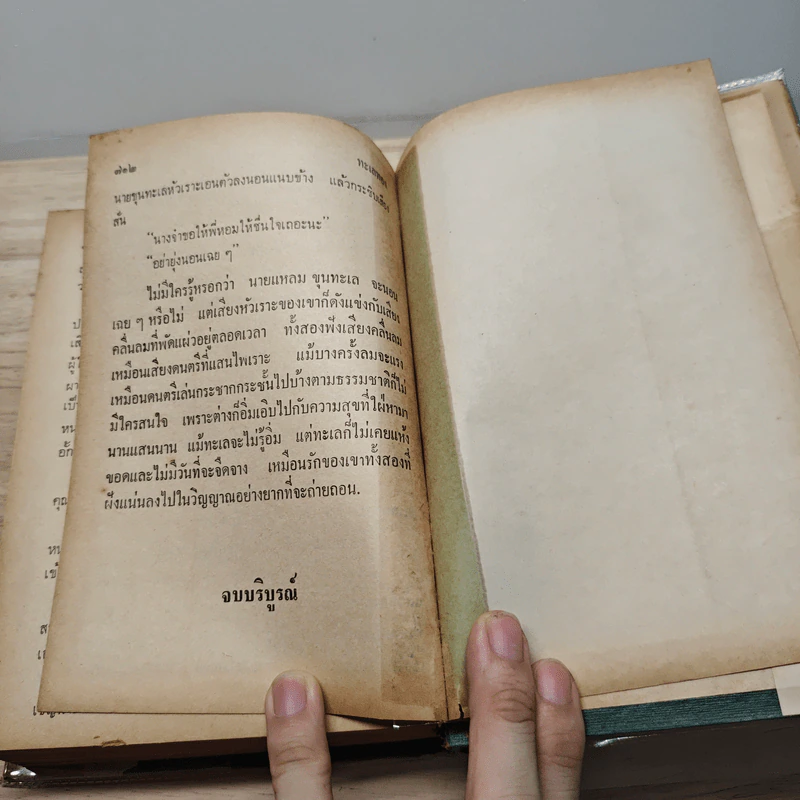 ๗๑๒
นายขุนทะเลหัวเราะเอนตัวลงนอนแนบข้าง แล้วกระซิบเสียง
สั่น
"นางจ๋าขอให้พี่หอมให้ชื่นใจเถอะนะ"
"อย่ายุ่งนอนเฉย ๆ"
ไม่มีใครรู้หรอกว่า นายแหลม ขุนทะเล จะนอน
เฉย ๆ หรือไม่ แต่เสียงหัวเราะของเขาก็ดังแข่งกับเสียง
คลื่นลมที่พัดแผ่วอยู่ตลอดเวลา ทั้งสองฟังเสียงคลื่นลม
เหมือนเสียงดนตรีที่แสนไพเราะ แม้บางครั้งลมจะแรง
เหมือนดนตรีเล่นกระชากกระชั้นไปบ้างตามธรรมชาติก็ไม่
มีใครสนใจ เพราะต่างก็อิ่มเอิบไปกับความสุขที่ใฝ่หามา
นานแสนนาน แม้ทะเลจะไม่รู้อิ่ม แต่ทะเลก็ไม่เคยแห้ง
ขอดและไม่มีวันที่จะจืดจาง เหมือนรักของเขาทั้งสองที่
ฝังแน่นลงไปในวิญญาณอย่างยากที่จะถ่ายถอน.
จบบริบูรณ์